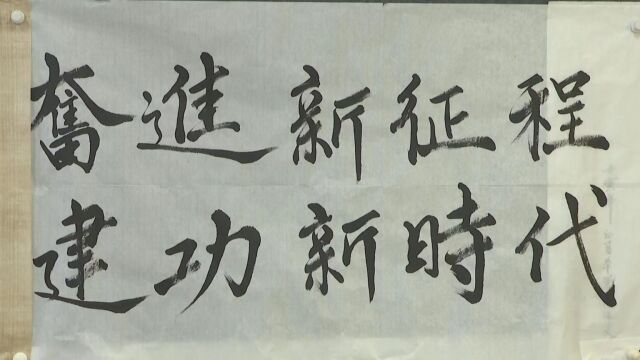 奮進新征程
建功新時代